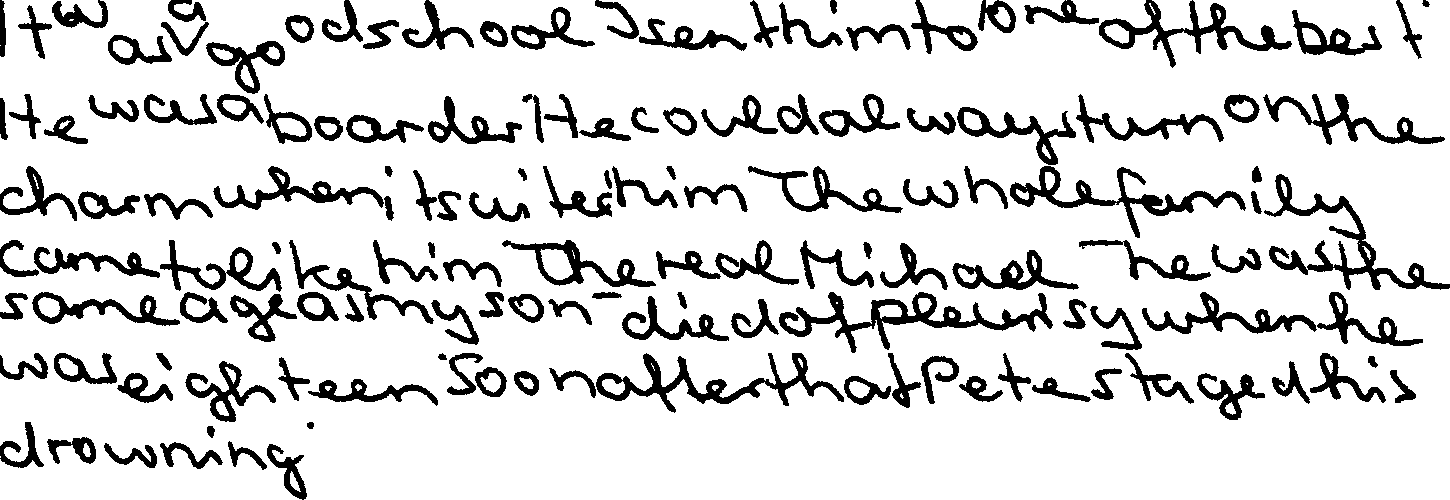 It was a good school I sent him to one of the best
He was a boarder He could always turn on the
charm when it suited him The whole family
came to like him The real Michael - he was the
same age as my son - died of pleurisy when he
was eighteen Soon after that Pete staged his
drowning.